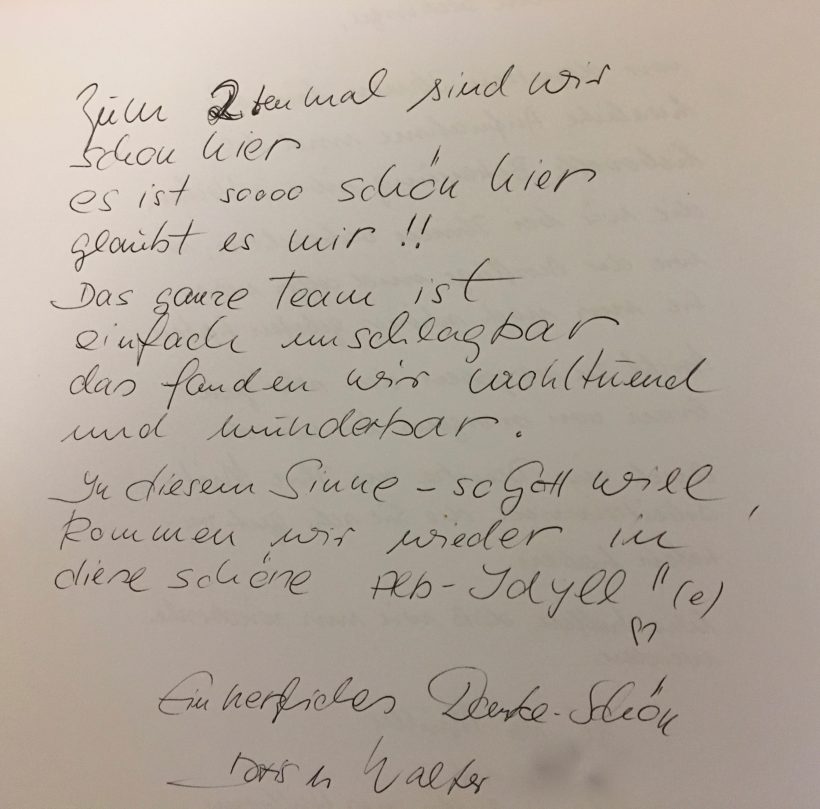 Zum 2tenmal sind wir
schon hier
es ist soooo schön hier
glaubt es mir !!
Das ganze Team ist
einfach unschlagbar
das fanden wir wohltuend
und wunderbar.
In diesem Sinne - so Gott will,
kommen wir wieder in
diese schöne Alb-Idyll"(e)
Ein herzliches Danke-Schön
Doris u Walter